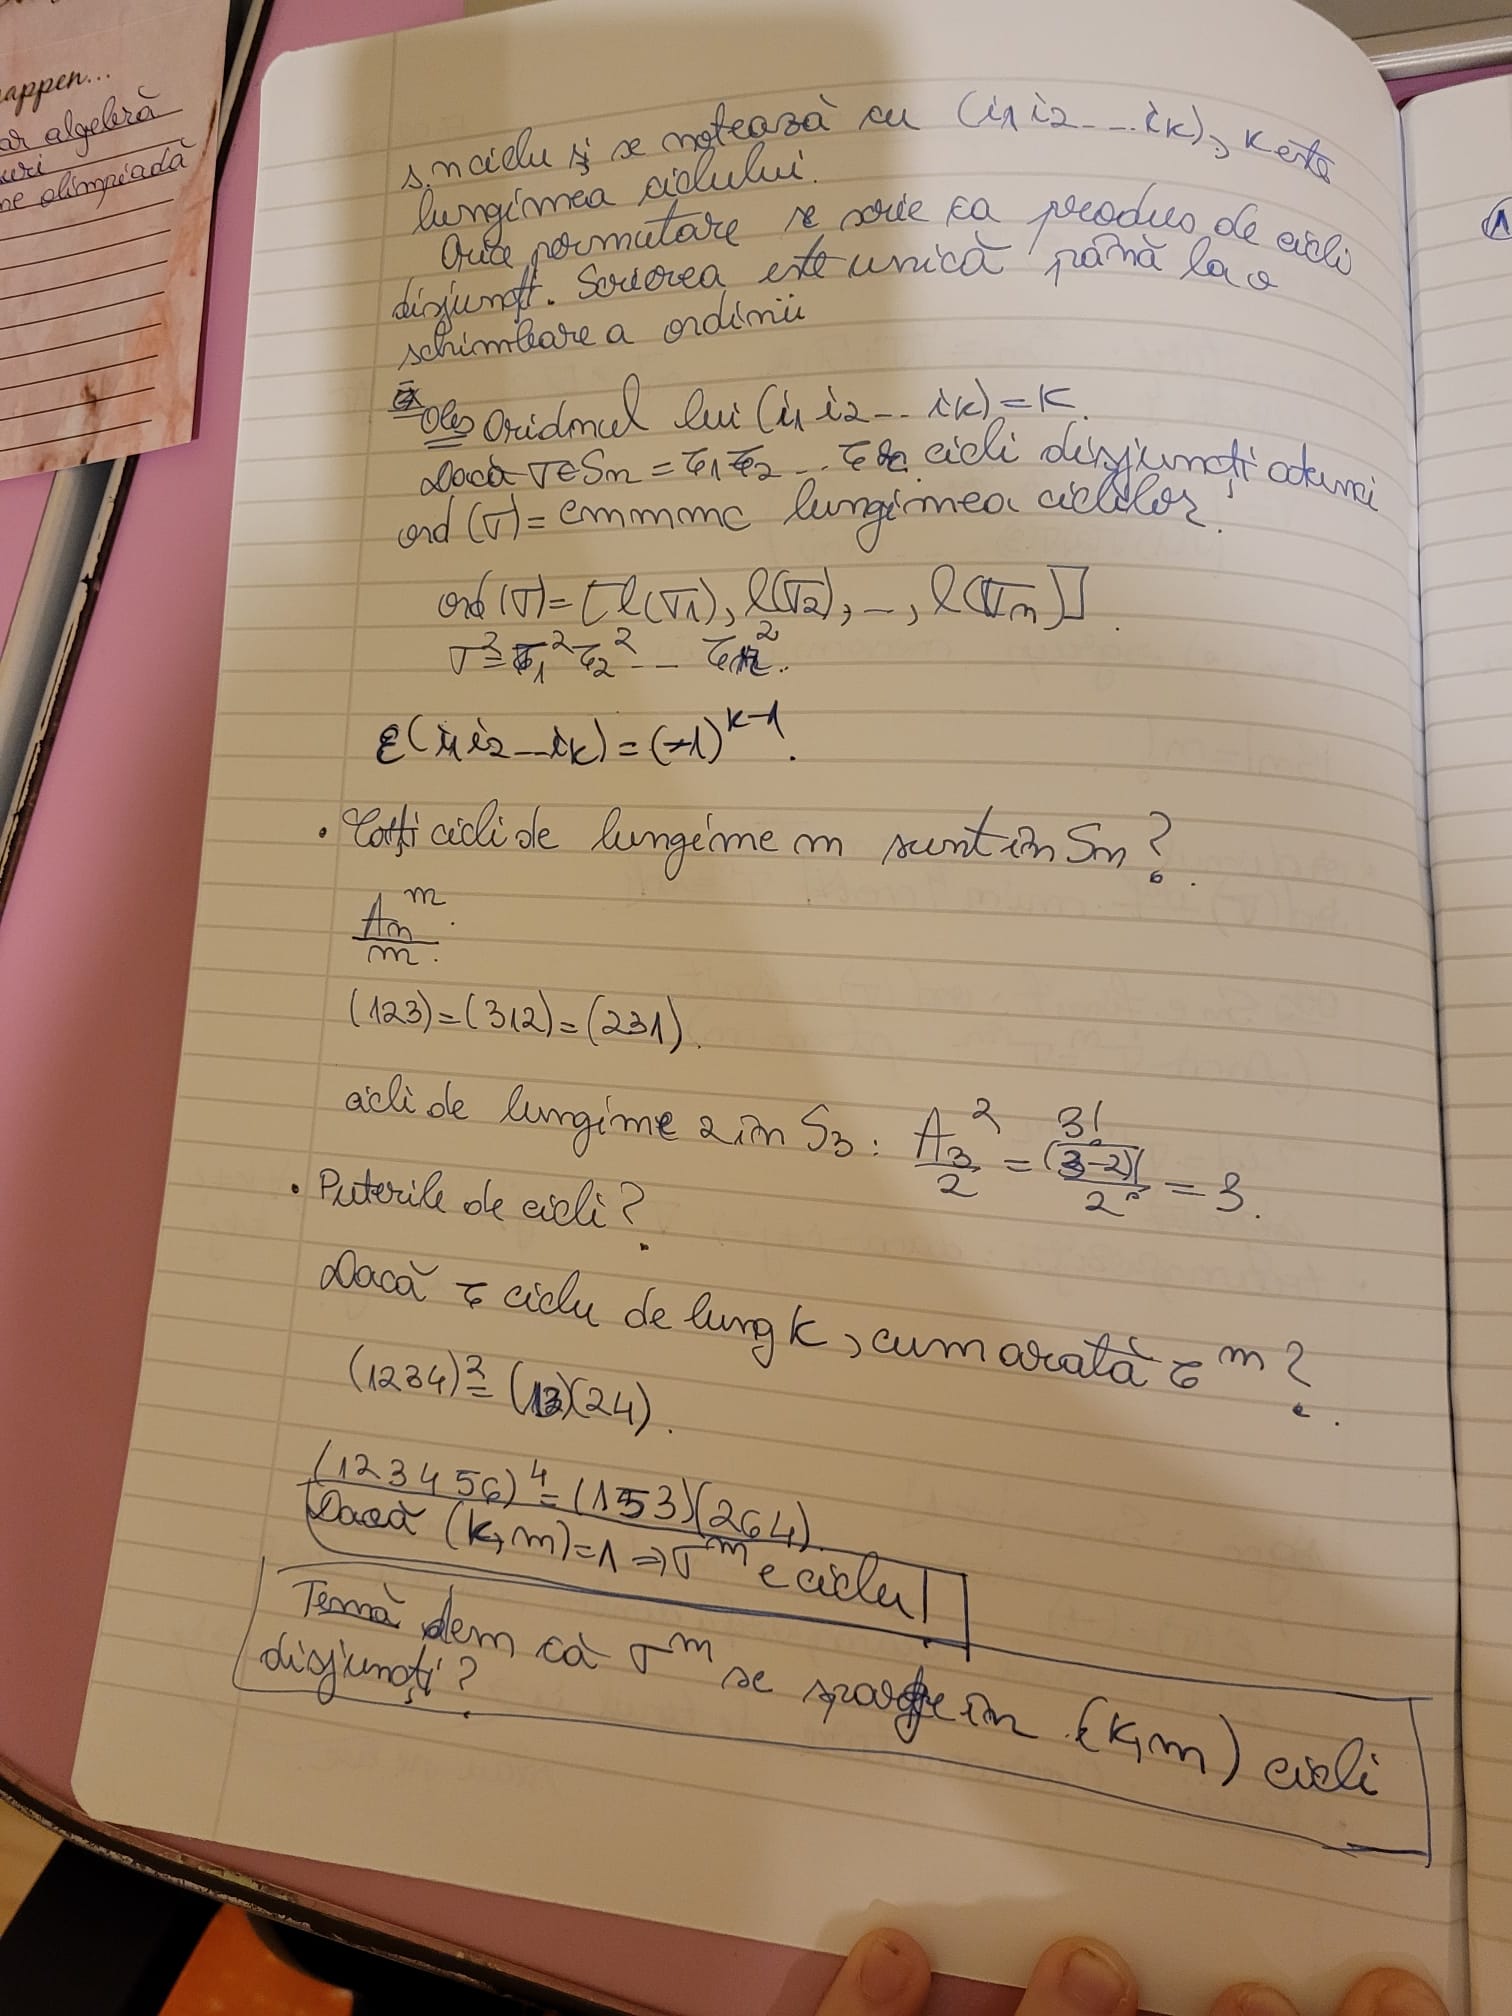 appen...
ar algebră
uri
ne olimpiadă
s.n ciclu și se notează cu (i1 i2 ... ik), k este
lungimea ciclului.
Orice permutare se scrie ca produs de cicli
disjuncți. Scrierea este unică până la o
schimbare a ordinii
Obs Oridnul lui (i1 i2 ... ik) = k.
Dacă σ∈Sn = τ1 τ2 ... cicli disjuncți atunci
ord (σ) = cmmmc lungimea ciclilor.
ord (σ) = [l(σ1), l(σ2), ..., l(σn)].
σ² = τ1² τ2² ... τr².
ε(i1 i2 ... ik) = (-1)^{k-1}.
• Câți cicli de lungime m sunt în Sn?
An^m / m.
(123) = (312) = (231).
cicli de lungime 2 în S3 : A3^2 / 2 = 3!/(3-2)! / 2 = 3.
• Puterile de cicli?
Dacă τ ciclu de lung k, cum arată τ^m?
(1234)² = (13)(24).
(123456)⁴ = (153)(264).
Dacă (k, m) = 1 ⇒ σ^m e ciclu!
Temă dem că σ^m se sparge în (k, m) cicli
disjuncți?